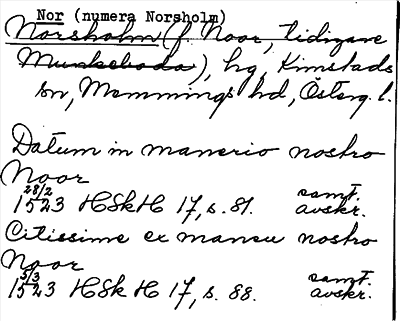 Nor (numera Norsholm)
Norsholm (f. Noor, tidigare
Munkeboda), hg, Kimstads
sn, Memmings hd, Österg. l.
Datum in manerio nostro
Noor
28/2
1523 HSkH 17, s. 81. samt. avskr.
Citissime ex maneu nostro
Noor
5/3
1523 HSkH 17, s. 88. samt. avskr.